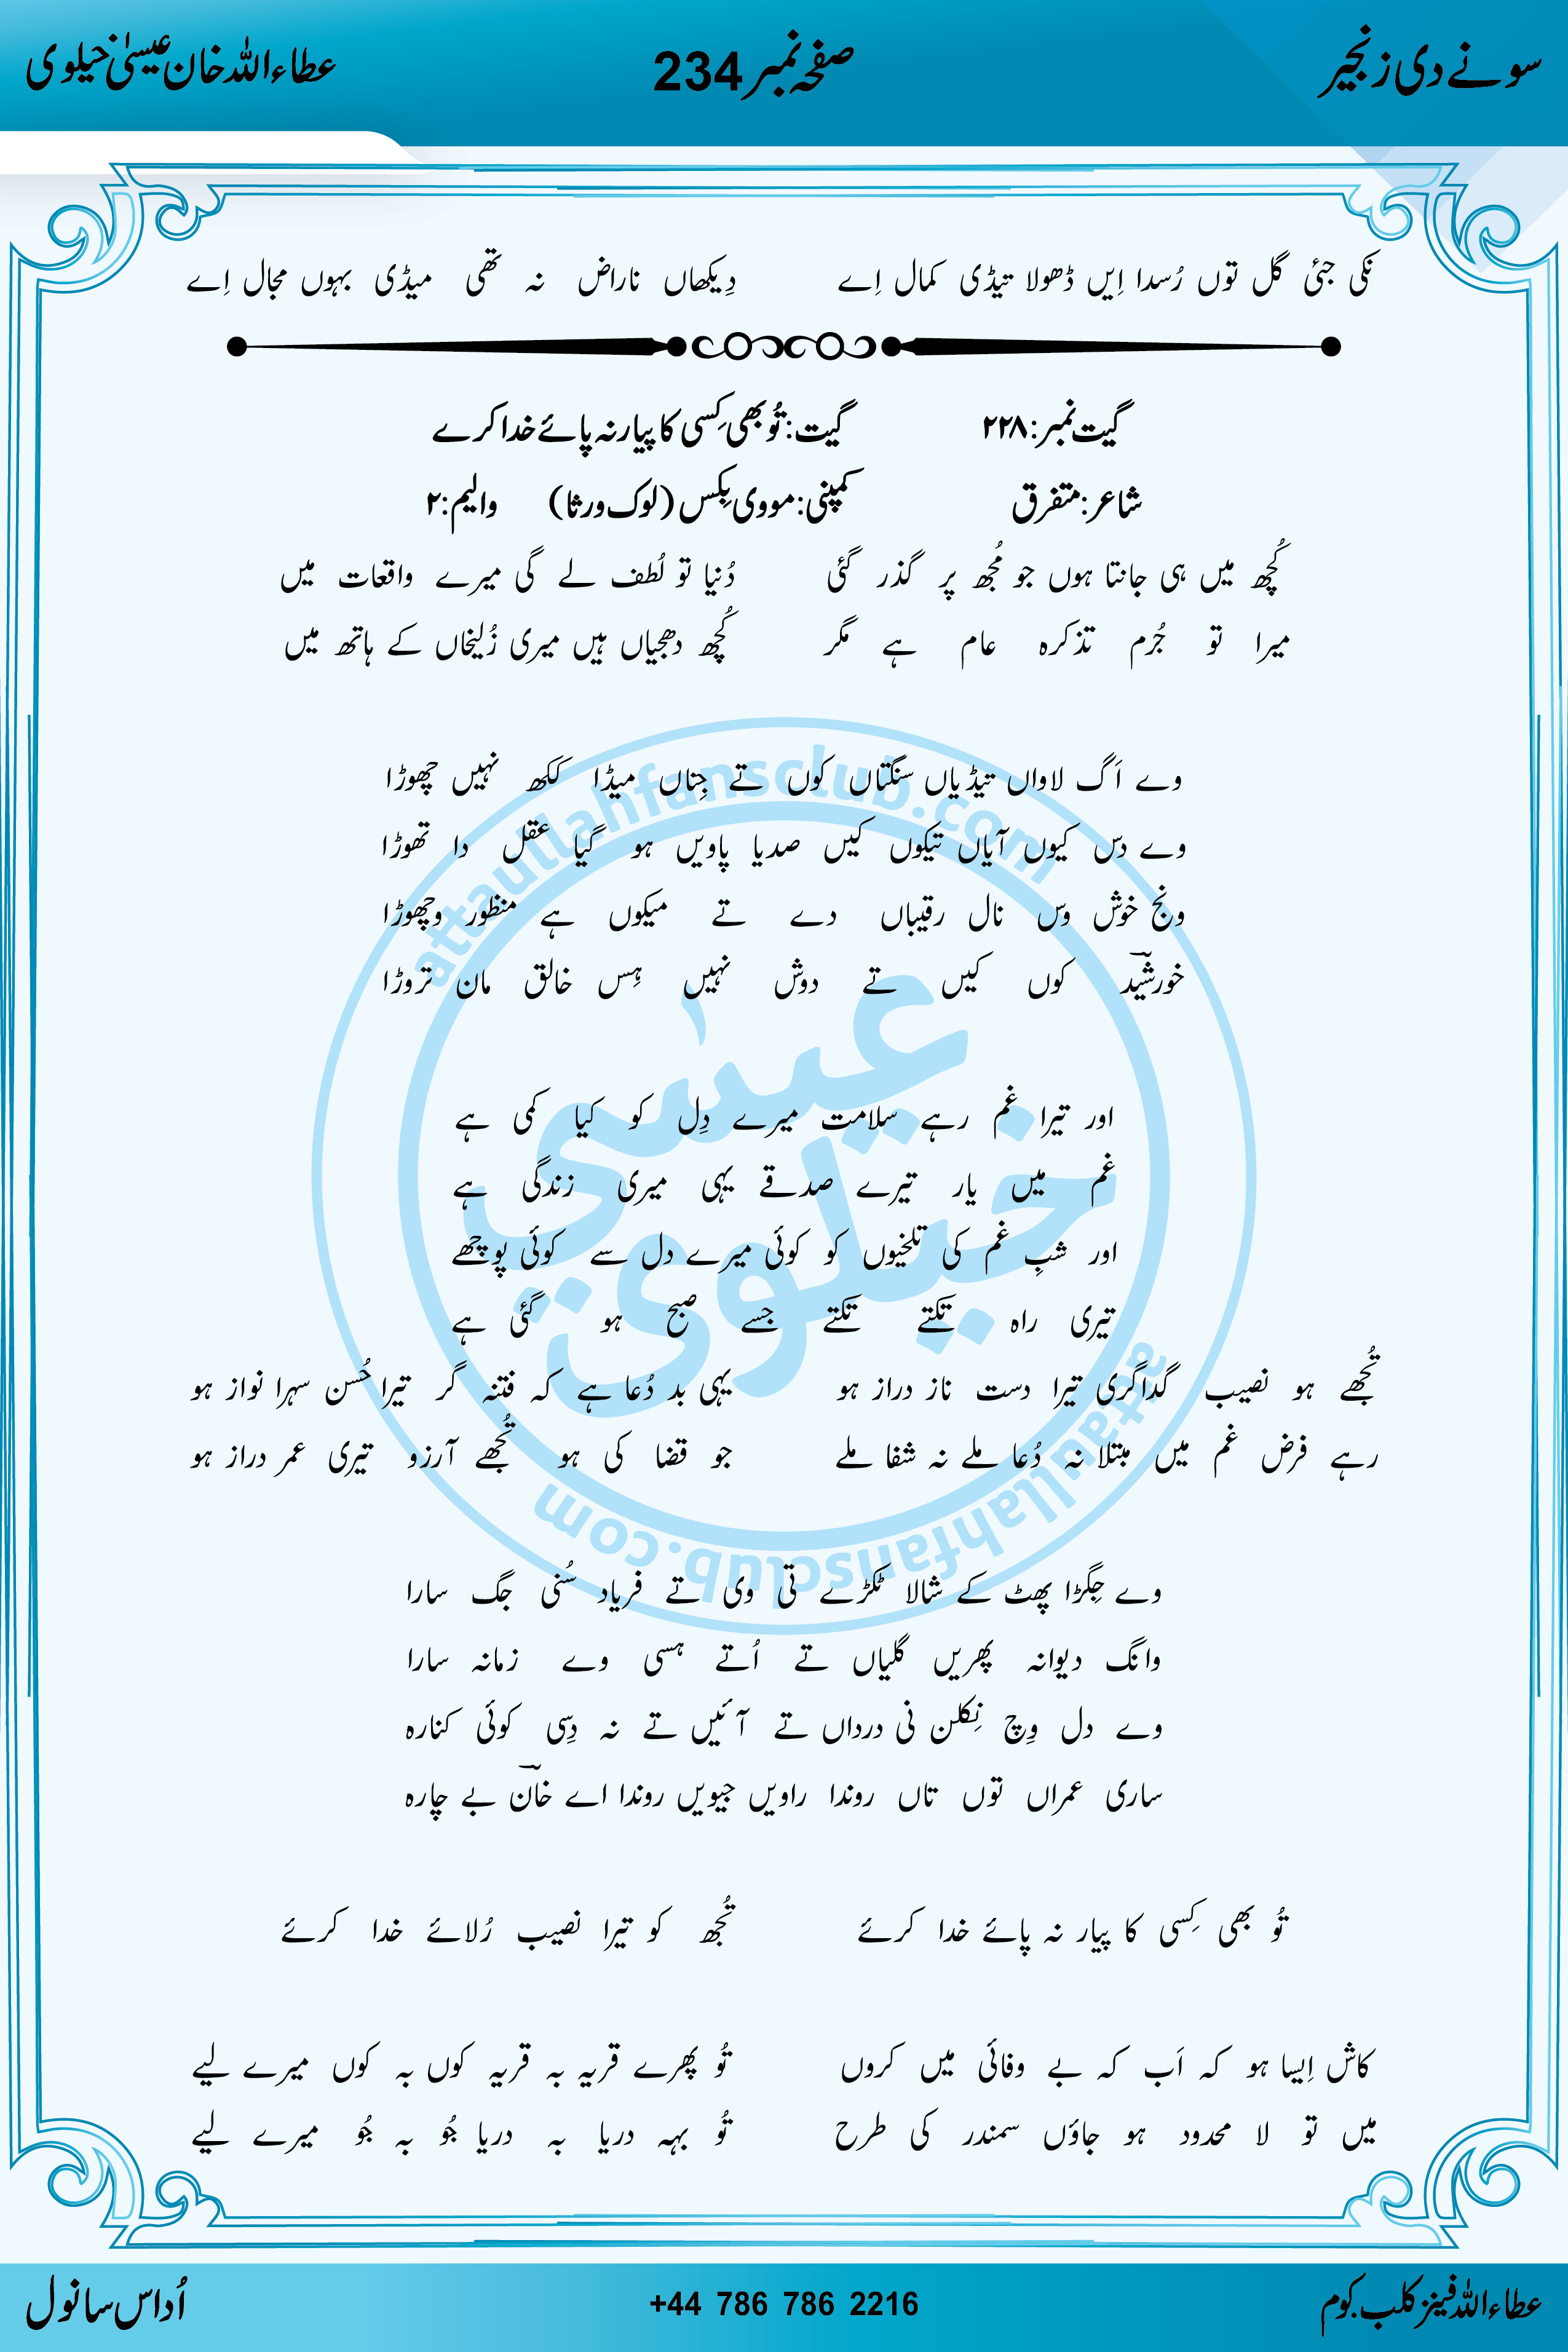 سونے دی زنجیر صفحہ نمبر 234 عطاءاللہ خان عیسیٰ خیلوی
نکی جئی گل توں رُسدا اِیں ڈھولا تیڈی کمال اِے دِیکھاں ناراض نہ تھی میڈی بہوں مجال اِے
گیت نمبر: ۲۲۸ گیت: تُو بھی کِسی کا پیار نہ پائے خدا کرے
شاعر: متفرق کمپنی: مووی بِکس (لوک ورثا) والیم: ۲
کُچھ میں ہی جانتا ہوں جو مُجھ پر گذر گئی دُنیا تو لُطف لے گی میرے واقعات میں
میرا تو جُرم تذکرہ عام ہے مگر کُچھ دھجیاں ہیں میری زُلیخاں کے ہاتھ میں
وے اَگ لاواں تیڈیاں سنگتاں کوں تے جِتاں میڈا ککھ نہیں چھوڑا
وے دس کیوں آیاں تیکوں کیں صدیا پاویں ہو گیا عقل دا تھوڑا
ونج خوش وس نال رقیباں دے تے میکوں ہے منظور وچھوڑا
خورشید کوں کیں تے دوش نہیں ہِس خالق مان تروڑا
اور تیرا غم رہے سلامت میرے دِل کو کیا کمی ہے
غم میں یار تیرے صدقے یہی میری زندگی ہے
اور شبِ غم کی تلخیوں کو کوئی میرے دل سے کوئی پوچھے
تیری راہ تکتے تکتے جسے صبح ہو گئی ہے
تُجھے ہو نصیب گداگری تیرا دست ناز دراز ہو یہی بد دُعا ہے کہ فتنہ گر تیرا حُسن سہرا نواز ہو
رہے فرض غم میں مبتلا نہ دُعا ملے نہ شفا ملے جو قضا کی ہو تُجھے آرزو تیری عمر دراز ہو
وے جِگڑا پھٹ کے شالا ٹکڑے تی وی تے فریاد سُنی جگ سارا
وانگ دیوانہ پھریں گلیاں تے اُتے ہسی وے زمانہ سارا
وے دل وِچ نِکلن نی درداں تے آئیں تے نہ دِسی کوئی کنارہ
ساری عمراں توں تاں روندا راویں جیویں روندا اے خان بے چارہ
تُو بھی کِسی کا پیار نہ پائے خدا کرئے تُجھ کو تیرا نصیب رُلائے خدا کرئے
کاش اِیسا ہو کہ اَب کہ بے وفائی میں کروں تُو پھرے قریہ بہ قریہ کوں بہ کوں میرے لیے
میں تو لا محدود ہو جاؤں سمندر کی طرح تُو بہہ دریا بہ دریا جُو بہ جُو میرے لیے
attaullahfansclub.com
عیسی خیلوی
attaullahfansclub.com
عطاءاللہ فینز کلب.کوم +44 786 786 2216 اُداس سانول